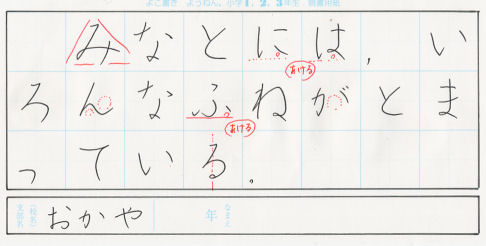 よこ書き ようねん、小学1、2、3年生 朝書用紙
みなとには，い
あける
ろんなふねがとま
あける
っている。
(校名) 支部名 おかや 年 なまえ